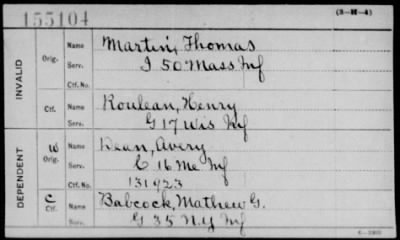 155104
(3-H-4)
INVALID
Orig.
Name Martin, Thomas
Serv. I 50 Mass Inf
Ctf. No.
Ctf.
Name Roulean, Henry
Serv. G 17 Wis Inf
DEPENDENT
W
Orig.
Name Dean, Avery
Serv. C 16 Me Inf
Ctf. No. 131923
C
Ctf.
Name Babcock, Mathew G.
Serv. G 35 N.Y Inf